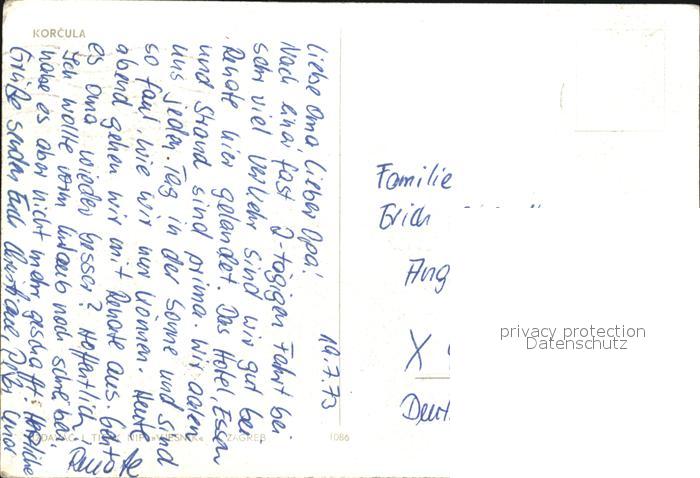 KORČULA
19.7.73
Liebe Oma, lieber Opa!
Nach einer fast 2-tägigen Fahrt bei
sehr viel Verkehr sind wir gut bei
Renate hier gelandet. Das Hotel, Essen
und Strand sind prima. Wir aalen
uns jeden Tag in der Sonne und sind
so faul wie wir nur können. Heute
abend gehen wir mit Renate aus. Geht
es Oma wieder besser? Hoffentlich,
Ich wollte vorm Urlaub noch schreiben,
habe es aber nicht mehr geschafft. Herzliche
Grüße senden Euch Christiane,
Renate
ZAGREB
1086
Familie
Erich
Ang
X
Deut
privacy protection
Datenschutz